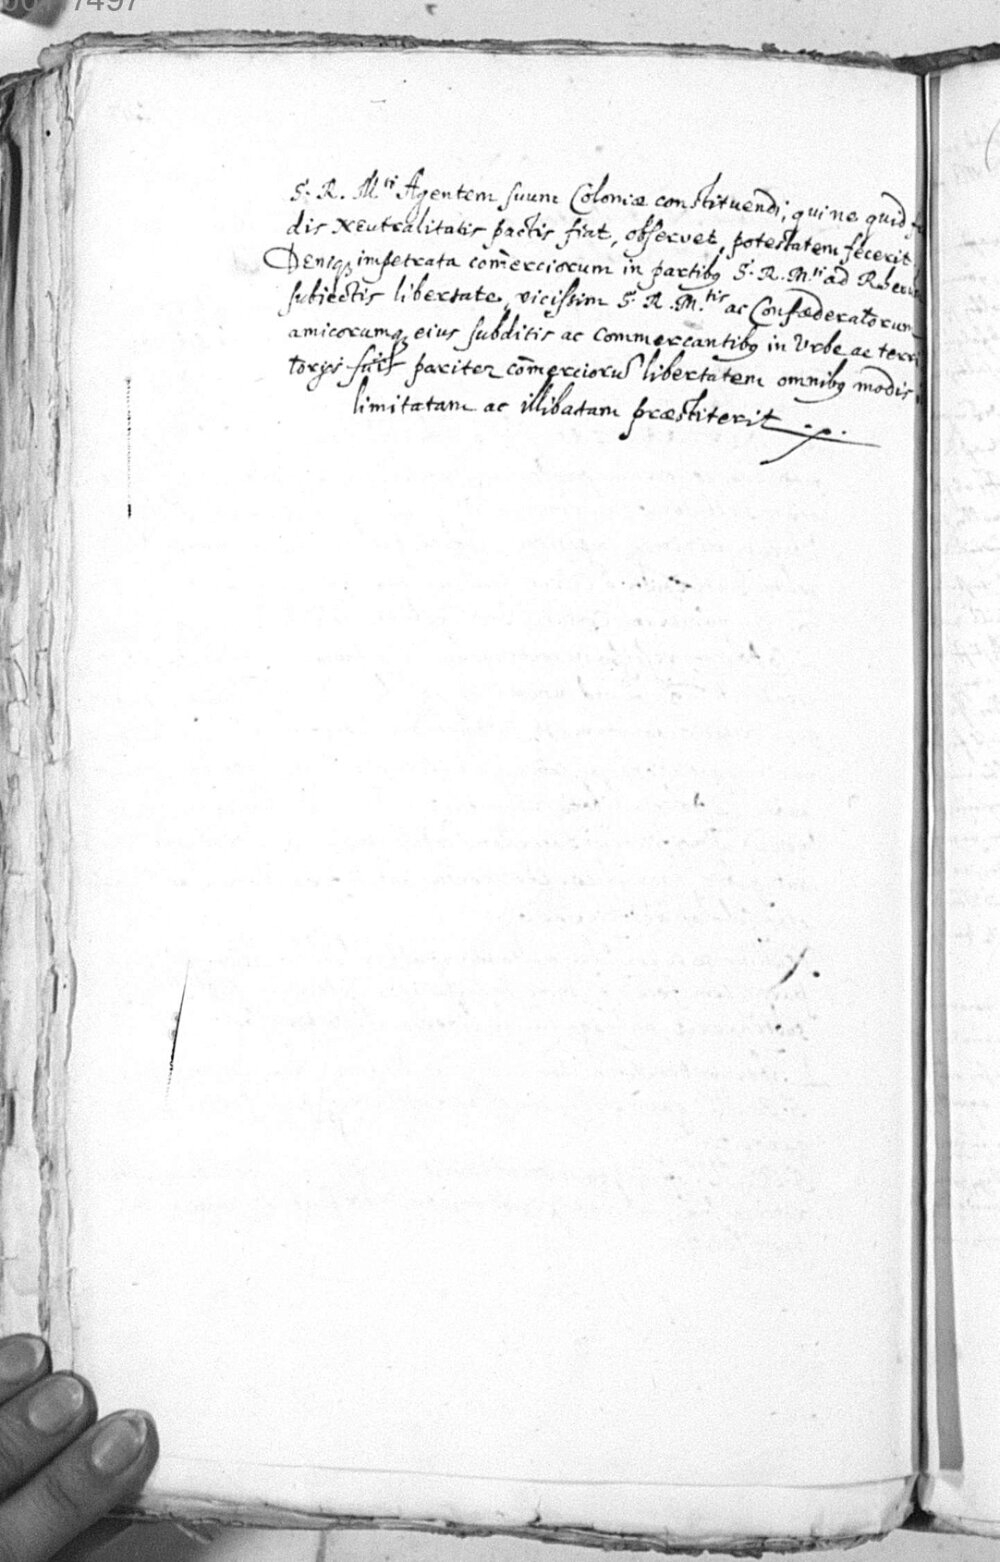 S. R. M.ti Agentem suum Coloniæ constituendi, qui ne quid
dis Neutralitatis pactis fiat, observet, potestatem fecerit
Deniq; impetrata com̄erciorum in partibq S. R. M.ti ad Rhenum
subiectis libertate, vicissim S. R. M.tis ac Confœderatorum
amicorumq eius subditis ac commercantibq in Urbe ac terri
torijs suis pariter com̄erciorū libertatem omnibq modis
limitatam ac illibatam præstiterit